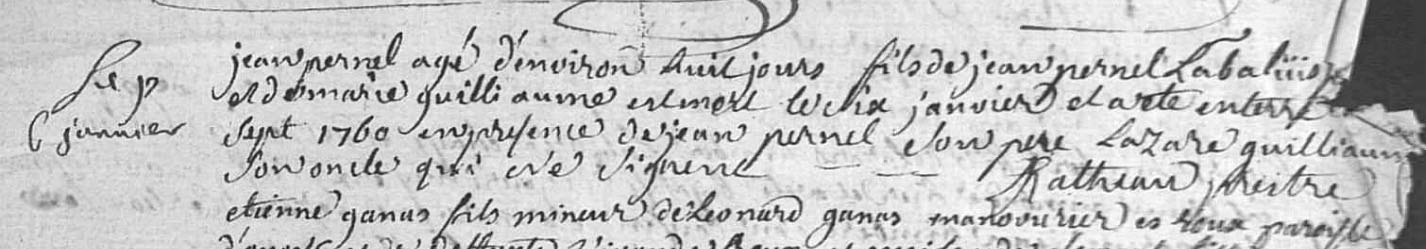 Sep
6 janvier
jean pernel agé d'environ huit jours fils de jean pernel
et de marie guilliaume est mort le six janvier et a ete enterré
sept 1760 en presence de jean pernel son pere Lazare guilliaume
son oncle qui ne signent Ratheau prêtre
etienne ganas fils mineur de Leonard ganas manouvrier es roux paroisse